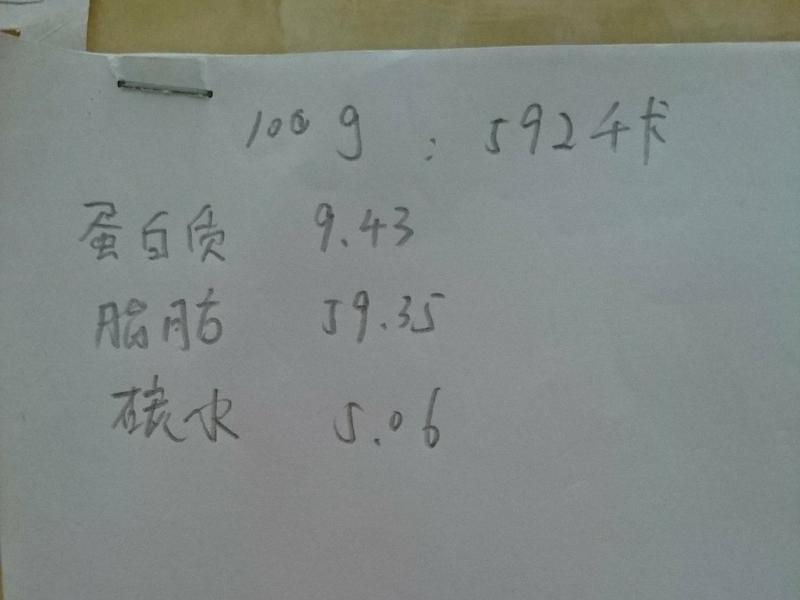 100g：592千卡
蛋白质 9.43
脂肪 59.35
碳水 5.06